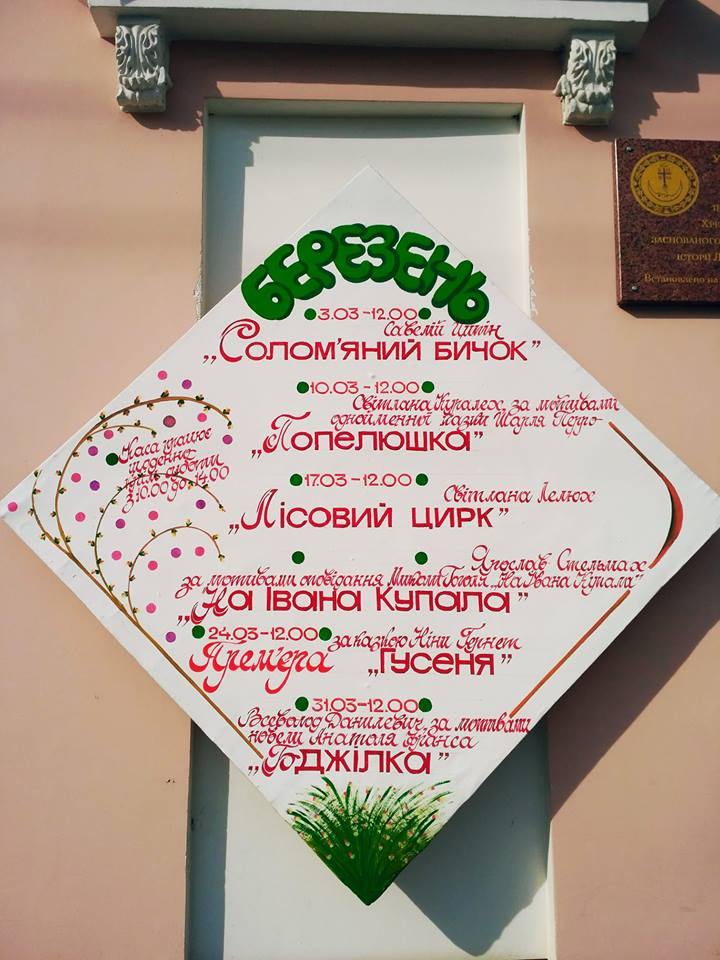 БЕРЕЗЕНЬ
3.03-12.00
Савелій Ципін
„Солом'яний бичок”
10.03-12.00
Світлана за мотивами
однойменної казки Шарля Перро
„Попелюшка”
Каса працює
щоденно
крім суботи
з 10.00 до 14.00
17.03-12.00
Світлана Лелюх
„Лісовий цирк”
Ярослав Стельмах
за мотивами оповідання Миколи Гоголя „На Івана Купала”
„На Івана Купала”
24.03-12.00 за казкою Ніни Гернет
Прем'єра „Гусеня”
31.03-12.00
Всеволод Данилевич за мотивами
новели Анатоля Франса
„Бджілка”
заснованого
історії Л
Встановлено на